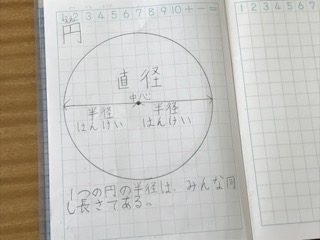 3 4 5 6 7 8 9 10 + − =
円
直径
中心
半径 半径
はんけい はんけい
1つの円の半径は、みんな同
じ長さである。
1 2 3 4 5 6 7